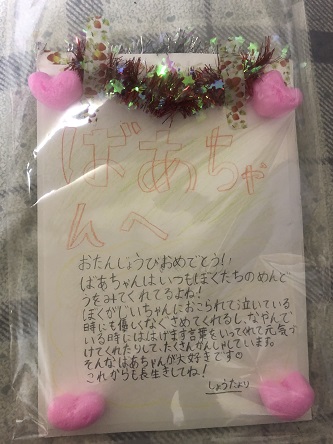 ばあちゃ
んへ
おたんじょうびおめでとう!!
ばあちゃんはいつもぼくたちのめんど
うをみてくれてるよね!
ぼくがじいちゃんにおこられて泣いている
時にも優しくなぐさめてくれるし、なやんで
いる時にははげます言葉をいってくれて元気づ
けてくれたりして、たくさんかんしゃしています。
そんなばあちゃんが大好きです。
これからも長生きしてね!
しょうたより